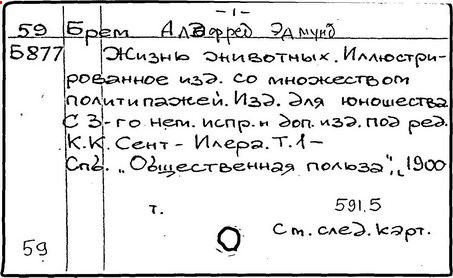 -1-
59 Брем Альфред Эдмунд
Б877 Жизнь животных. Иллюстри-
рованное изд. со множеством
политипажей. Изд. для юношества
С 3-го нем. испр. и доп. изд. под ред.
К.К. Сент-Илера. Т.1-
Спб. „Общественная польза", 1900
т. 591.5
См. след. карт.
59